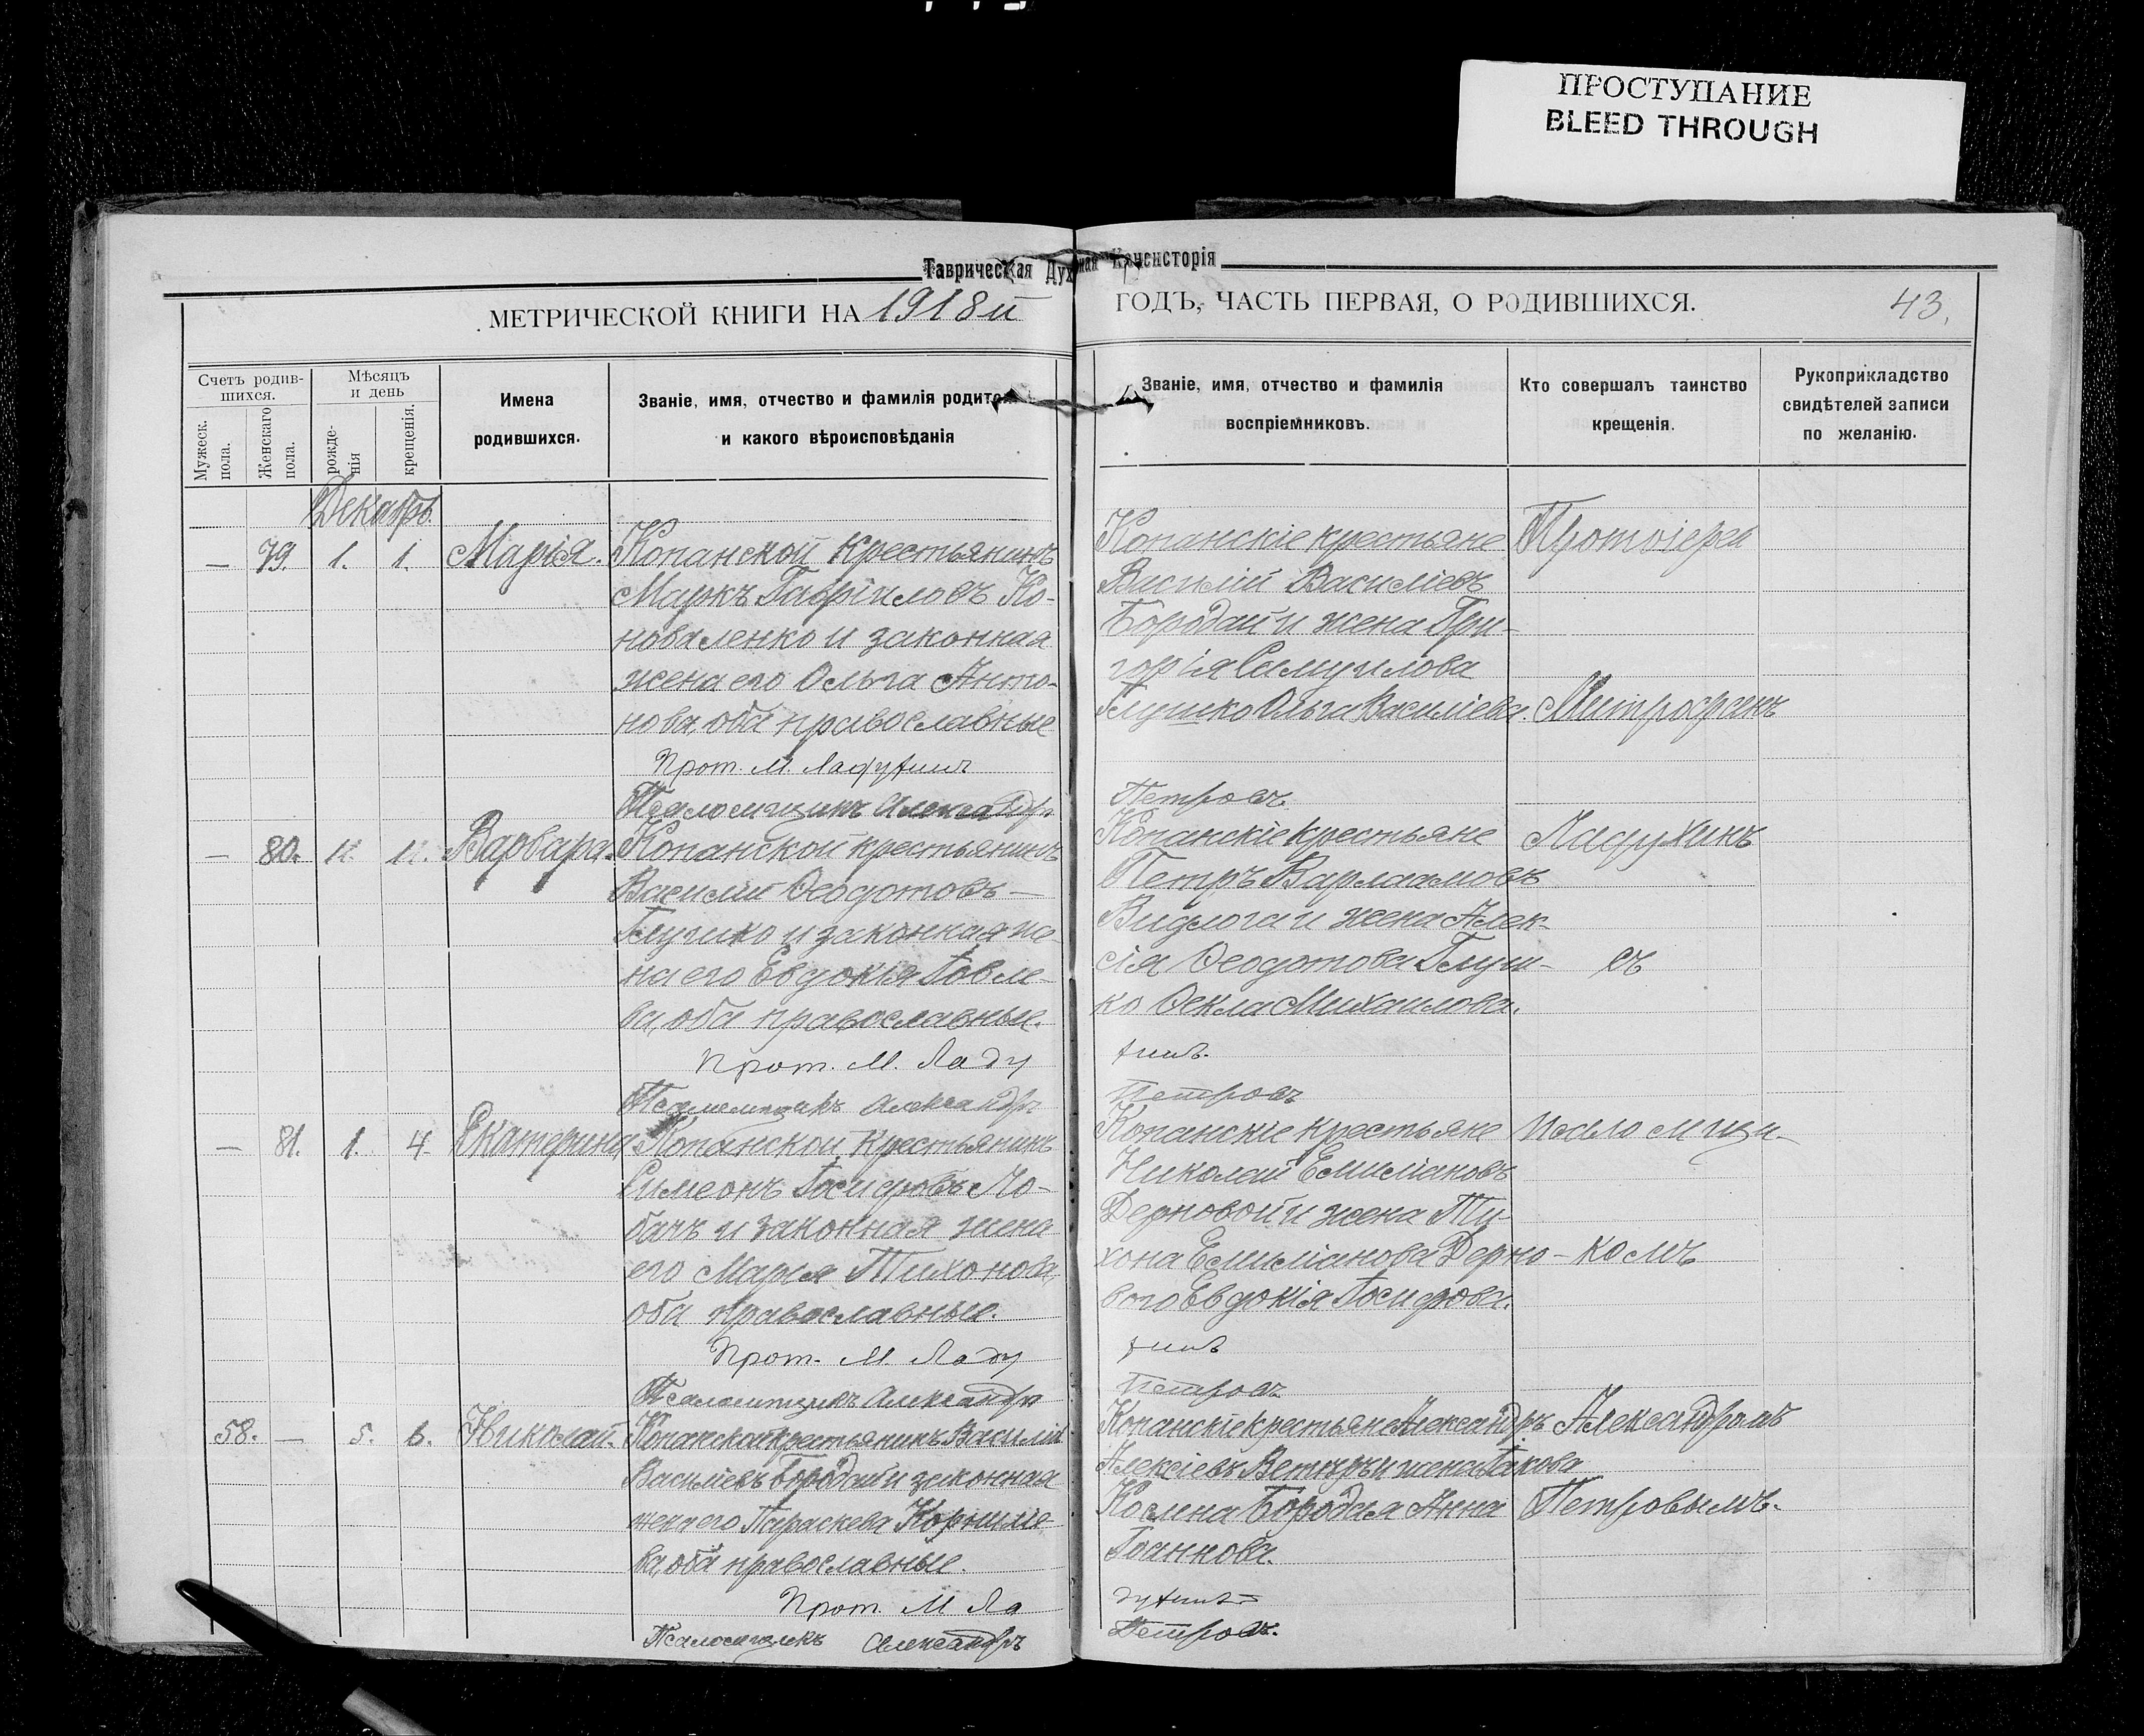 ПРОСТУПАНИЕ
BLEED THROUGH
Таврическая Духовная Консисторія
МЕТРИЧЕСКОЙ КНИГИ НА 1918й ГОДЪ, ЧАСТЬ ПЕРВАЯ, О РОДИВШИХСЯ.
43.
Счетъ родив-
шихся.
Мужеск.
пола.
Женскаго
пола.
Мѣсяцъ
и день
рожде-
нія
крещенія.
Имена
родившихся.
Званіе, имя, отчество и фамилія родител
и какого вѣроисповѣданія
Званіе, имя, отчество и фамилія
воспріемниковъ.
Кто совершалъ таинство
крещенія.
Рукоприкладство
свидѣтелей записи
по желанію.
Декабрь.
— 79. 1. 1. Марія.
Копанской крестьянинъ
Маркъ Гавріиловъ Ко-
новаленко и законная
жена его Ольга Анто-
нова, оба православные
Прот. М. Ладухинъ
Псаломщикъ Александръ
Копанскіе крестьяне
Василій Василіевъ
Бородай и жена Гри-
горія Самуилова
Глушко Ольга Василіева.
Петровъ
— 80. 11. Варвара.
Копанской крестьянинъ
Василій Ѳеодотовъ —
Глушко и законная же-
на его Евдокія Іовле-
ва, оба православные.
Прот. М. Ладу
Псаломщикъ Александръ
Копанскіе крестьяне
Петръ Варлаамовъ
и жена Алек-
сія Ѳеодотова Глуш-
ко Ѳекла Михаилова.
хинъ.
Петровъ
— 81. 1. 4. Екатерина
Копанской крестьянинъ
Симеонъ Іосифовъ Ло-
бачъ и законная жена
его Марія Тихонова,
оба православные.
Прот. М. Ладу
Псаломщикъ Александръ
Копанскіе крестьяне
Николай Емиліановъ
Дерновой и жена Ти-
хона Емиліанова Дерно-
вого Евдокія Іосифова.
хинъ
Петровъ
58. — 5. 6. Николай.
Копанской крестьянинъ Василій
Василіевъ Бородай и законная
жена его Параскева Корниліе-
ва, оба православные.
Прот. М Ла
Псаломщикъ Александръ
Копанскіе крестьяне Александръ
Алексіевъ Ветеръ и жена Іакова
Бородая Анна
Іоаннова.
духинъ
Петровъ.
Протоіерей
Митрофанъ
Ладухинъ
съ
псаломщи-
комъ
Александромъ
Петровымъ.